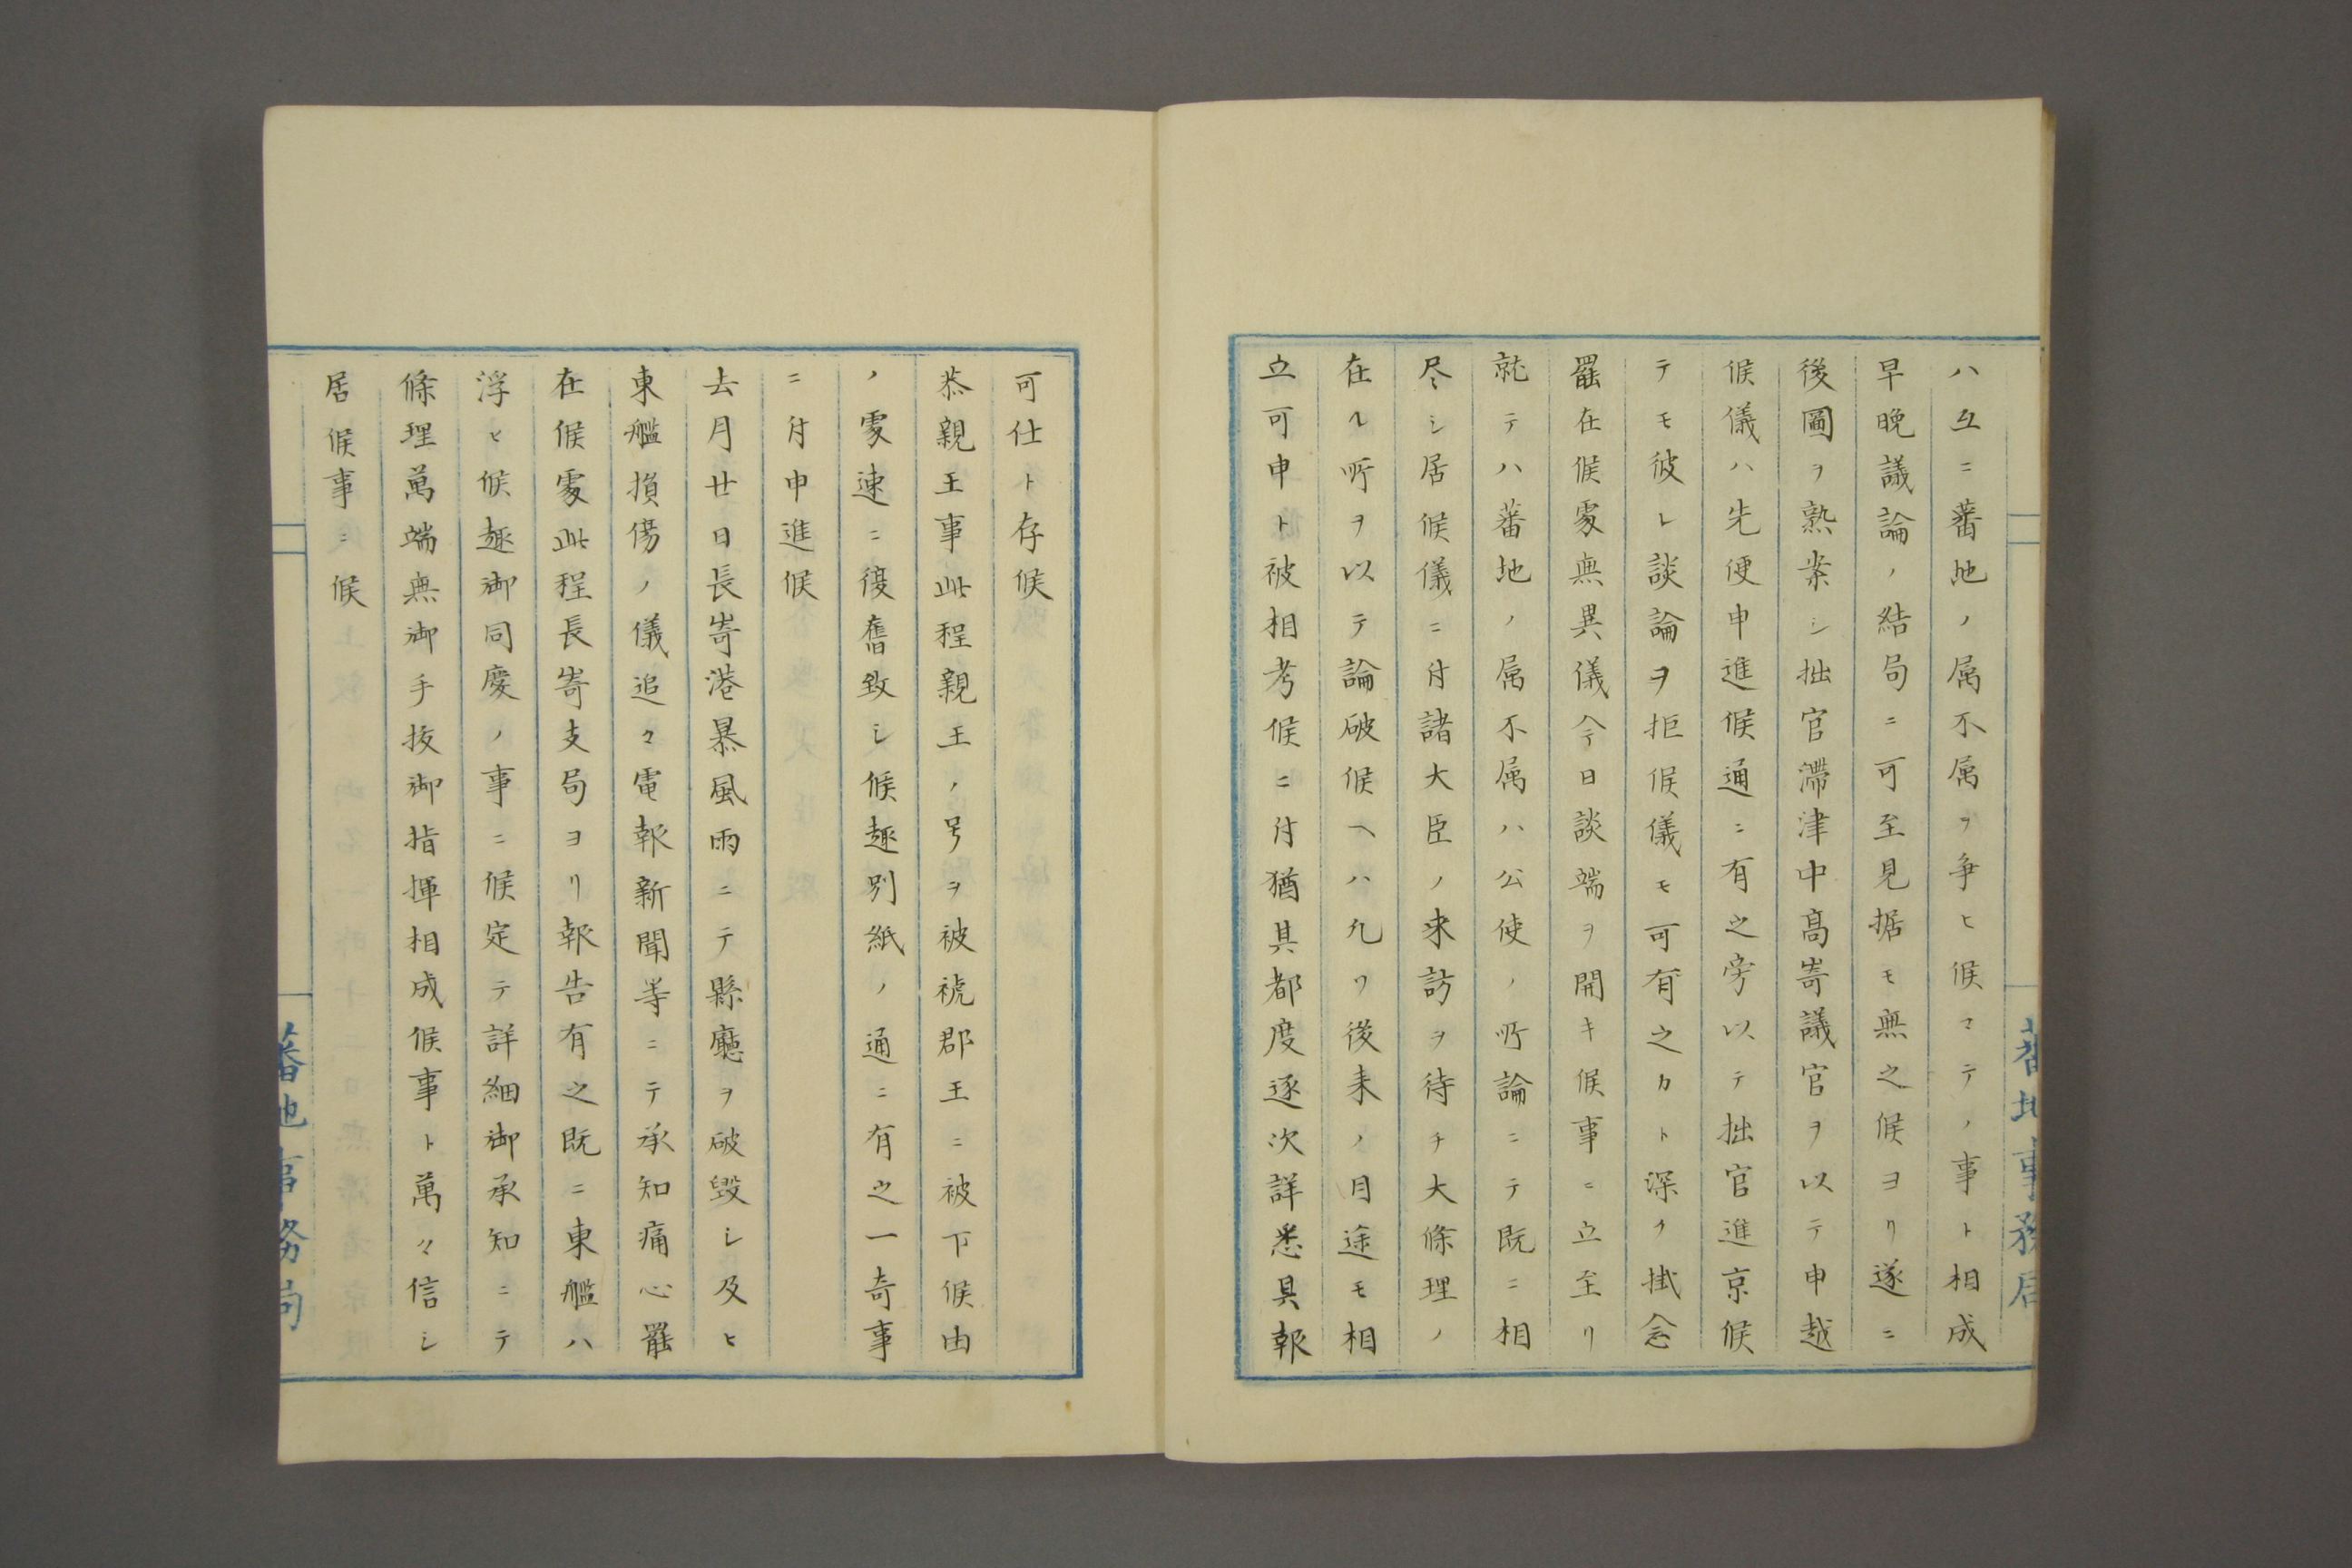 ハ互ニ蕃地ノ属不属ヲ争ヒ候マテノ事ト相成
早晩議論ノ結局ニ可至見据モ無之候ヨリ遂ニ
後圖ヲ熟案シ拙官滞津中髙嵜議官ヲ以テ申越
候儀ハ先便申進候通ニ有之旁以テ拙官進京候
テモ彼レ談論ヲ拒候儀モ可有之カト深ク掛念
罷在候處無異儀今日談端ヲ開キ候事ニ立至リ
就テハ蕃地ノ属不属ハ公使ノ所論ニテ既ニ相
尽シ居候儀ニ付諸大臣ノ来訪ヲ待チ大條理ノ
在ル所ヲ以テ論破候ヘハ凡ソ後来ノ目途モ相
立可申ト被相考候ニ付猶其都度逐次詳悉具報
可仕ト存候
恭親王事此程親王ノ号ヲ被褫郡王ニ被下候由
ノ處速ニ復舊致シ候趣別紙ノ通ニ有之一奇事
ニ付申進候
去月廿日長嵜港暴風雨ニテ縣廳ヲ破毀シ及ヒ
東艦損傷ノ儀追々電報新聞等ニテ承知痛心罷
在候處此程長嵜支局ヨリ報告有之既ニ東艦ハ
浮ヒ候趣御同慶ノ事ニ候定テ詳細御承知ニテ
條理萬端無御手抜御指揮相成候事ト萬々信シ
居候事ニ候
蕃地事務局
蕃地事務局